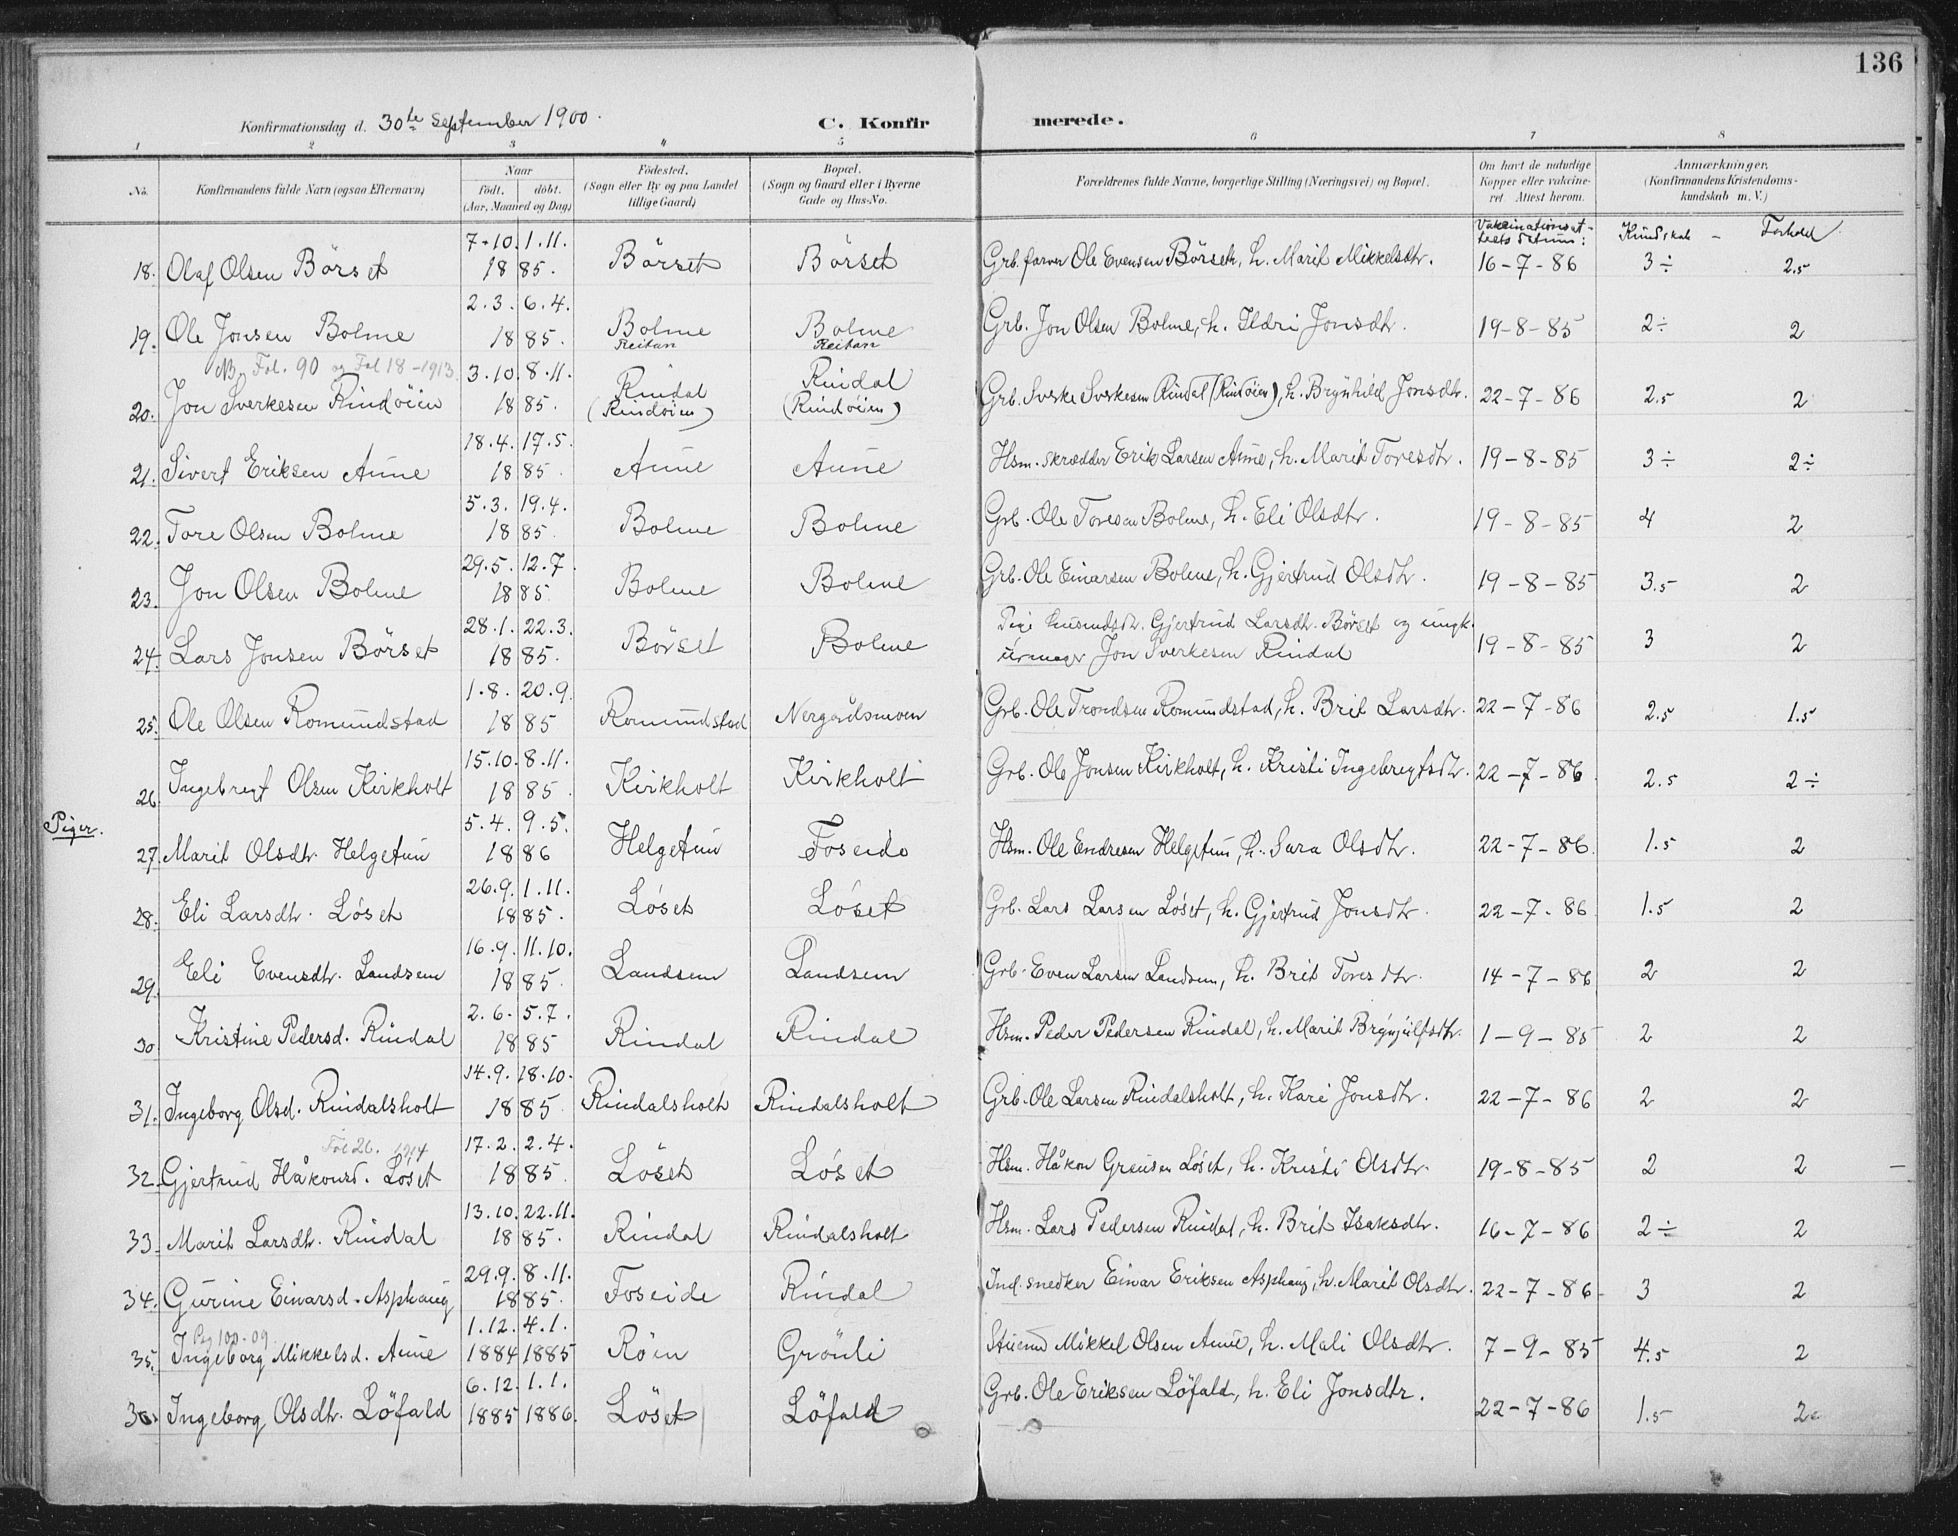 136
Konfirmationsdag d. 30te September 1900. C. Konfirmerede.
1 2 3 4 5 6 7 8
No. Konfirmandens fulde Navn (ogsaa Efternavn) Naar födt. döbt. (Aar, Maaned og Dag) Födested. (Sogn eller By og paa Landet tillige Gaard) Bopæl. (Sogn og Gaard eller i Byerne Gade og Hus-No. Forældrenes fulde Navne, borgerlige Stilling (Næringsvei) og Bopæl. Om havt de naturlige Kopper eller vakcineret. Attest herom. Anmærkninger. (Konfirmandens Kristendomskundskab m. V.)
Vakcinationsattests datum: Kundskab - Forhold
18. Olaf Olsen Börset 7.10. 1885. 1.11. Börset Börset Grb. farver Ole Evensen Börset, h. Marit Mikkelsdtr. 16-7-86 3÷ 2.5
19. Ole Jonsen Bolme 2.3. 6.4. 1885. Bolme Reitan Bolme Reitan Grb. Jon Olsen Bolme, h. Ildri Jonsdtr. 19-8-85 2÷ 2
NB Fol. 90 og Fol 18-1913
20. Jon Sverkesen Rindöien 3.10. 8.11. 1885. Rindal (Rindöien) Rindal (Rindöien) Grb. Sverke Sverkesen Rindal (Rindöien), h. Brynhild Jonsdtr. 22-7-86 2.5 2
21. Sivert Eriksen Aune 18.4. 17.5. 1885. Aune Aune Hsm. skrædder Erik Larsen Aune, h. Marit Toresdtr. 19-8-85 3÷ 2÷
22. Tore Olsen Bolme 5.3. 19.4. 1885. Bolme Bolme Grb. Ole Toresen Bolme, h. Eli Olsdtr. 19-8-85 4 2
23. Jon Olsen Bolme 29.5. 12.7. 1885. Bolme Bolme Grb. Ole Einarsen Bolme, h. Gjertrud Olsdtr. 19-8-85 3.5 2
24. Lars Jonsen Börset 28.1. 22.3. 1885. Börset Bolme Pige husmdsdtr. Gjertrud Larsdtr. Börset og ungk. urmager Jon Sverkesen Rindal 19-8-85 3 2
25. Ole Olsen Romundstad 1.8. 20.9. 1885 Romundstad Nergårdsmoen Grb. Ole Trondsen Romundstad, h. Brit Larsdtr. 22-7-86 2.5 1.5
26. Ingebregt Olsen Kirkholt 15.10. 8.11. 1885. Kirkholt Kirkholt Grb. Ole Jonsen Kirkholt, h. Kristi Ingebregtsdtr. 22-7-86. 2.5 2÷
Piger.
27. Marit Olsdtr. Helgetun 5.4. 9.5. 1886 Helgetun Foseide Hsm. Ole Endresen Helgetun, h. Sara Olsdtr. 22-7-86. 1.5 2
28. Eli Larsdtr. Löset 26.9. 1.11. 1885. Löset Löset Grb. Lars Larsen Löset, h. Gjertrud Jonsdtr. 22-7-86. 1.5 2
29. Eli Evensdtr. Landsem 16.9. 11.10. 1885. Landsem Landsem Grb. Even Larsen Landsem, h. Brit Toresdtr. 14-7-86 2 2
30. Kristine Pedersd. Rindal 2.6. 5.7. 1885 Rindal Rindal Hsm. Peder Pedersen Rindal, h. Marit Brynjulfsdtr. 1-9-85 2 2
31. Ingeborg Olsd. Rindalsholt 14.9. 18.10. 1885. Rindalsholt Rindalsholt Grb. Ole Larsen Rindalsholt, h. Kari Jonsdtr. 22-7-86 2 2
Fol 26. 1914
32. Gjertrud Håkonsd. Löset 17.2. 2.4. 1885. Löset Löset Hsm. Håkon Hsm. Löset, h. Kristi Olsdtr. 19-8-85 2 2
33. Marit Larsdtr. Rindal 13.10. 22.11. 1885. Rindal Rindalsholt Hsm. Lars Pedersen Rindal, h. Brit Isaksdtr. 16-7-86 2÷ 2
34. Gurine Einarsd. Asphaug 29.9. 8.11. 1885. Foseide Rindal Ind. snedker Einar Eriksen Asphaug, h. Marit Olsdtr. 22-7-86- 3 2
Pg 100-09
35. Ingeborg Mikkelsd. Aune 1.12. 1884 4.1. 1885 Röen Grönli Mikkel Olsen Aune, h. Mali Olsdtr. 7-9-85 4.5 2
36. Ingeborg Olsdtr. Löfald 6.12. 1885 1.1. 1886. Löset Löfald Grb. Ole Eriksen Löfald, h. Eli Jonsdtr. 22-7-86 1.5 2